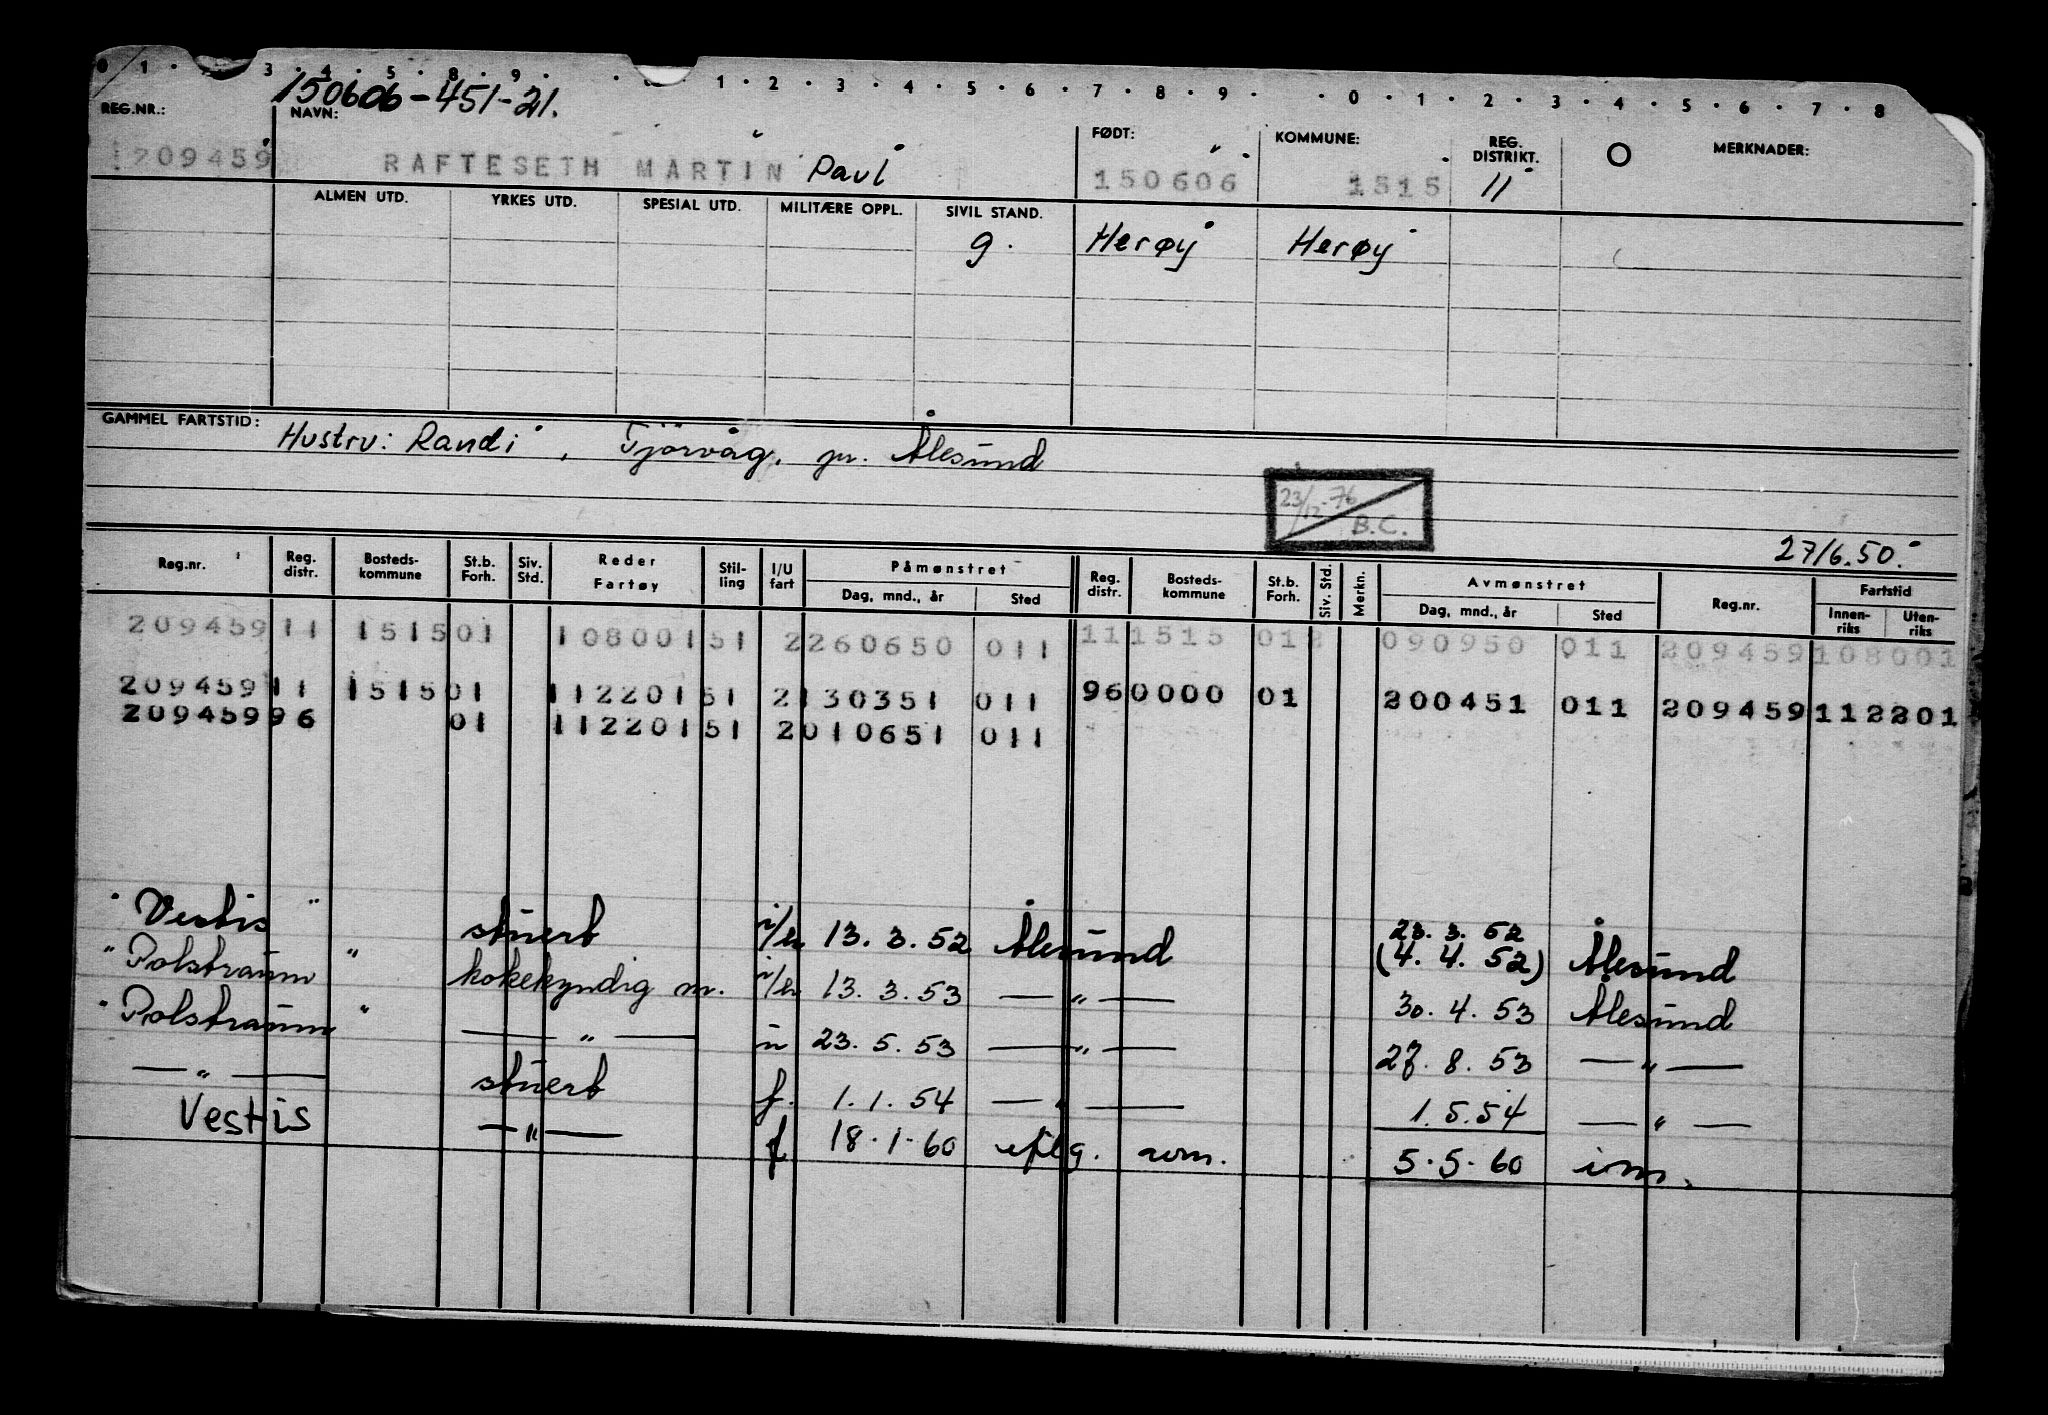 0 1 · 3 · 4 · 5 · 8 · 9 · · 1 · 2 · 3 · 4 · 5 · 6 · 7 · 8 · 9 · · 0 · 1 · 2 · 3 · 4 · 5 · 6 · 7 · 8
150606-451-21.
REG.NR.: NAVN: FØDT: KOMMUNE: REG. DISTRIKT. O MERKNADER:
209459 RAFTESETH MARTIN Paul 150606 1515 11
ALMEN UTD. YRKES UTD. SPESIAL UTD. MILITÆRE OPPL. SIVIL STAND.
g. Herøy Herøy
GAMMEL FARTSTID: Hustru: Randi, Tjörvåg, pr. Ålesund
23/12-76 B.C.
27/6.50.
Reg.nr. Reg. distr. Bosteds-kommune St.b. Forh. Siv. Std. Reder Fartøy Stil-ling I/U fart Påmønstret Reg. distr. Bosteds-kommune St.b. Forh. Siv. Std. Merkn. Avmønstret Reg.nr. Fartstid
Dag, mnd., år Sted Dag, mnd., år Sted Innen-riks Uten-riks
209459 11 1515 01 10800151 2260650 011 11 1515 01 090950 011 209459 108001
209459 11 1515 01 11220151 2130351 011 96 0000 01 200451 011 209459 112201
209459 96 01 11220151 2010651 011
"Vestis" stuert i/u 13.3.52 Ålesund 23.3.52 (4.4.52) Ålesund
"Polstraum" kokekyndig m. i/u 13.3.53 — " — 30.4.53 Ålesund
"Polstraum" — " — u 23.5.53 — " — 27.8.53 — " —
— " — stuert f. 1.1.54 — " — 1.5.54 — " —
Vestis — " — f 18.1.60 iflg. 5.5.60